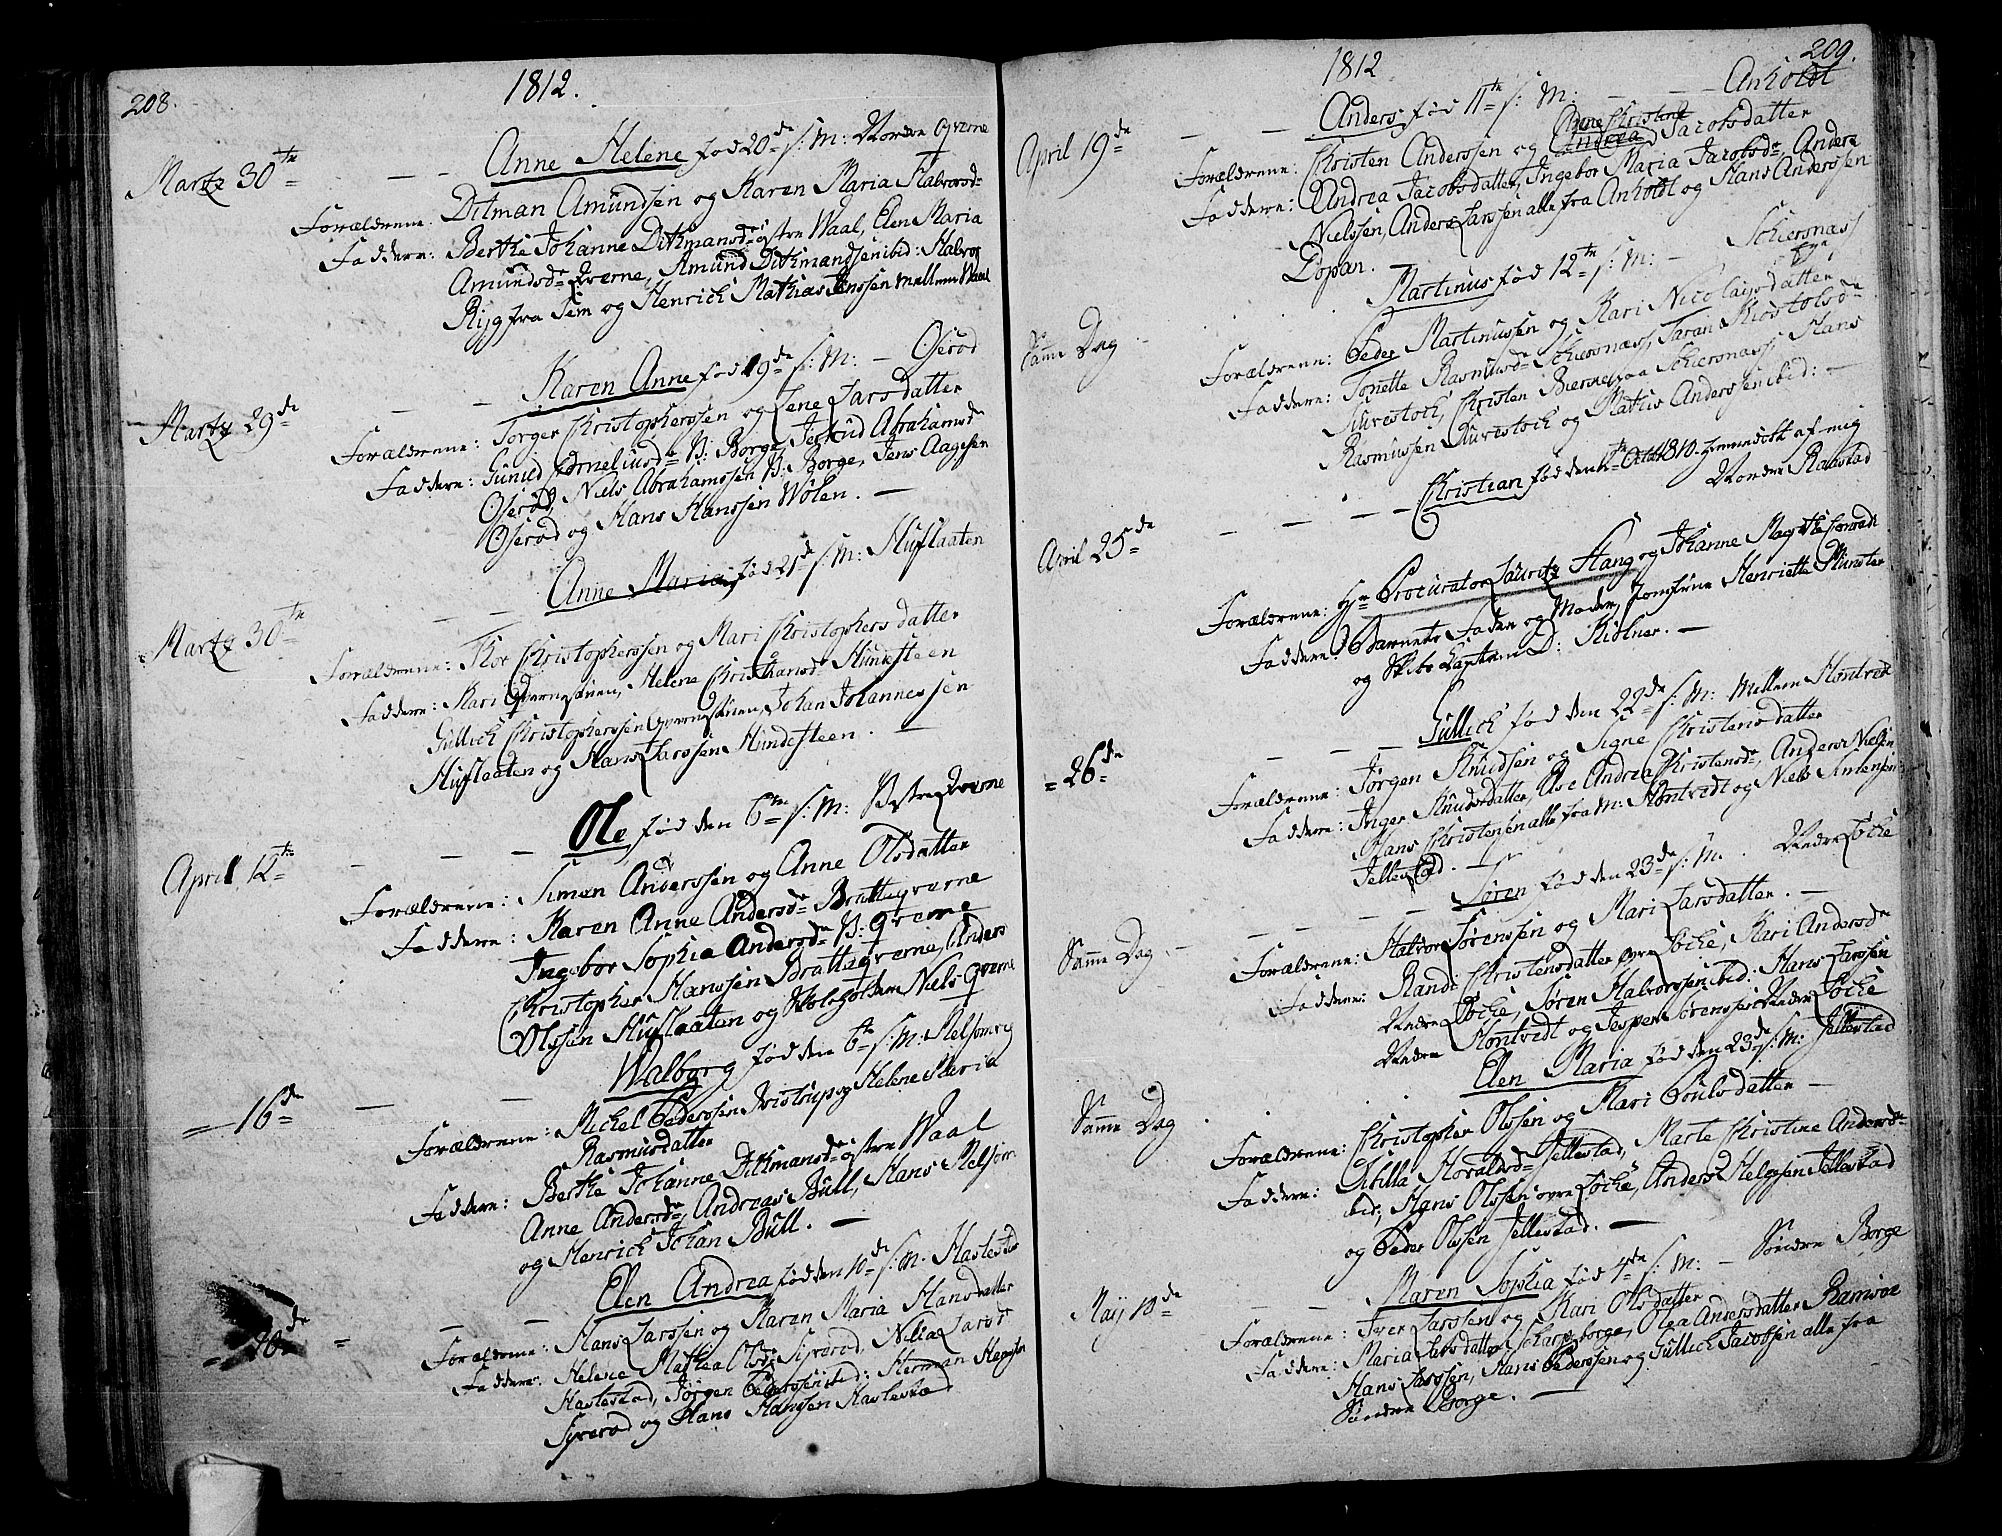 208.
1812.
Martz 30te
Anne Helene fød 20de s: M: Nordre Qværne
Forældrene: Ditman Amundsen og Karen Maria Halvorsd=
Faddere: Berthe Johanne Dithmansd= østre Waal, Elen Maria
Amundsd= Qværne, Amund Dithmandsen ibid: Halvor
Ryg fra Sem og Henrich Mathias Jenssen mellem Waal
Martz 29de
Karen Anne fød 19de s: M: — Oserød
Forældrene: Torger Christophersen og Lene Larsdatter
Faddere: Gunild Corneliusd= N: Borge, Jertrud Abrahamsd
Oserød, Niels Abrahamssen N: Borge, Jens Aagesen
Oserød og Hans Hanssen Wølen. —
Martz 30te
Anne Maria fød 21de s: M: Huflaaten
Forældrene: Thor Christopherssen og Mari Christophersdatter
Faddere: Kari Qverne, Helene Christiansd= Hundesteen
Gullich Christopherssen, Johan Johannessen
Huflaaten og Hans Larssen Hundesteen. —
April 12te
Ole, fød den 6te s: M: Qværne
Forældrene: Simen Anderssen og Anne Olsdatter
Faddere: Karen Anne Andersd= Bratteqværne
Ingebor Sophia Andersd= N: Qværne
Christopher Hanssen Bratteqværne, Anders
Olssen Huflaaten og Skoleholder Niels Qværne
= 16de
Walborg fød den 6te s: M: Melsomvig
Forældrene: Michel Pederssen og Helene Maria
Rasmusdatter
Faddere: Berthe Johanne Dithmansd= østre Waal
Anne Andersd=, Andreas Bull, Hans Melsom
og Henrich Johan Bull. —
= 18de =
Elen Andrea fød den 10de s: M: Hastestad
Forældrene: Hans Larssen og Karen Maria Hansdatter
Faddere: Helene Mathea Olsd= Syrerød, Nilia Larsd
Hastestad, Jørgen Pederssen ibid: Herman
Syrerød og Hans Hanssen Hastestad
209.
1812
April 19de
Anders fød 11te s: M: — — Anholdt
Anne Christine
Forældrene: Christen Anderssen og Andrea Jacobsdatter
Faddere: Andrea Jacobsdatter, Ingebor Maria Jacobsd=, Anders
Nielssen, Anders Larssen alle fra Anholdt og Hans Anderssen
Dopan.
Samme Dag
Martinus fød 12te s: M: — Schiersnæss
Forældrene: Peder Martinussen og Kari Nicolaysdatter
Faddere: Tonette Rasmusd= Schiersnæss, Taran Kiostolsd=
Furestock, Christen paa Schiersnæss, Hans
Rasmussen Furestock og Mathis Anderssen ibid: —
April 25de
Christian fød den Octbr 1810. hjemmedøbt af mig
Nordre Raastad
Forældrene: Hr Procurator Lauritz Hang og Johanne Magrethe Conradi
Faddere: Barnets Fader og Moder, Jomfrue Henriette Münster
og Skibs Capitain D: Kidner. —
= 26de
Gullich fød den 22de s: M: Mellem Hontvedt
Forældrene: Jørgen Knudsen og Signe Christensdatter
Faddere: Inger Knudsdatter, Ave Andrea Christensd=, Anders Nielsen
Hans Christensen alle fra M: Hontvedt og Niels Antensen
Jellestad. —
Samme Dag
Søren fød den 23de s: M: Nedre Løche
Forældrene: Halvor Sørenssen og Mari Larsdatter. —
Faddere: Randi Christensdatter øvre Løche, Kari Andersd=
Nedre Løche, Søren Halvorssen ibid: Hans Larssen
Nedre Hontvedt og Jesper Sørenssen Nedre Løche
Samme Dag
Elen Maria fød den 23de s: M: Jellestad
Forældrene: Christopher Olssen og Mari Poulsdatter —
Faddere: Sibilla Horaldsd= Jellestad, Marte Christine Andersd=
bid:, Hans Olssen øvre Løche, Anders Helgesen Jellestad
og Peder Olssen Jellestad. —
Maij 10de
Maren Sophia fød 4de s: M: — Søndre Borge
Forældrene: Iver Larssen og Kari Olsdatter
Faddere: Maria Larsdatter, Olea Andersdatter Ramsøe
Hans Larssen, Hans Pederssen og Gullich Jacobsen alle fra
Søndre Borge. —